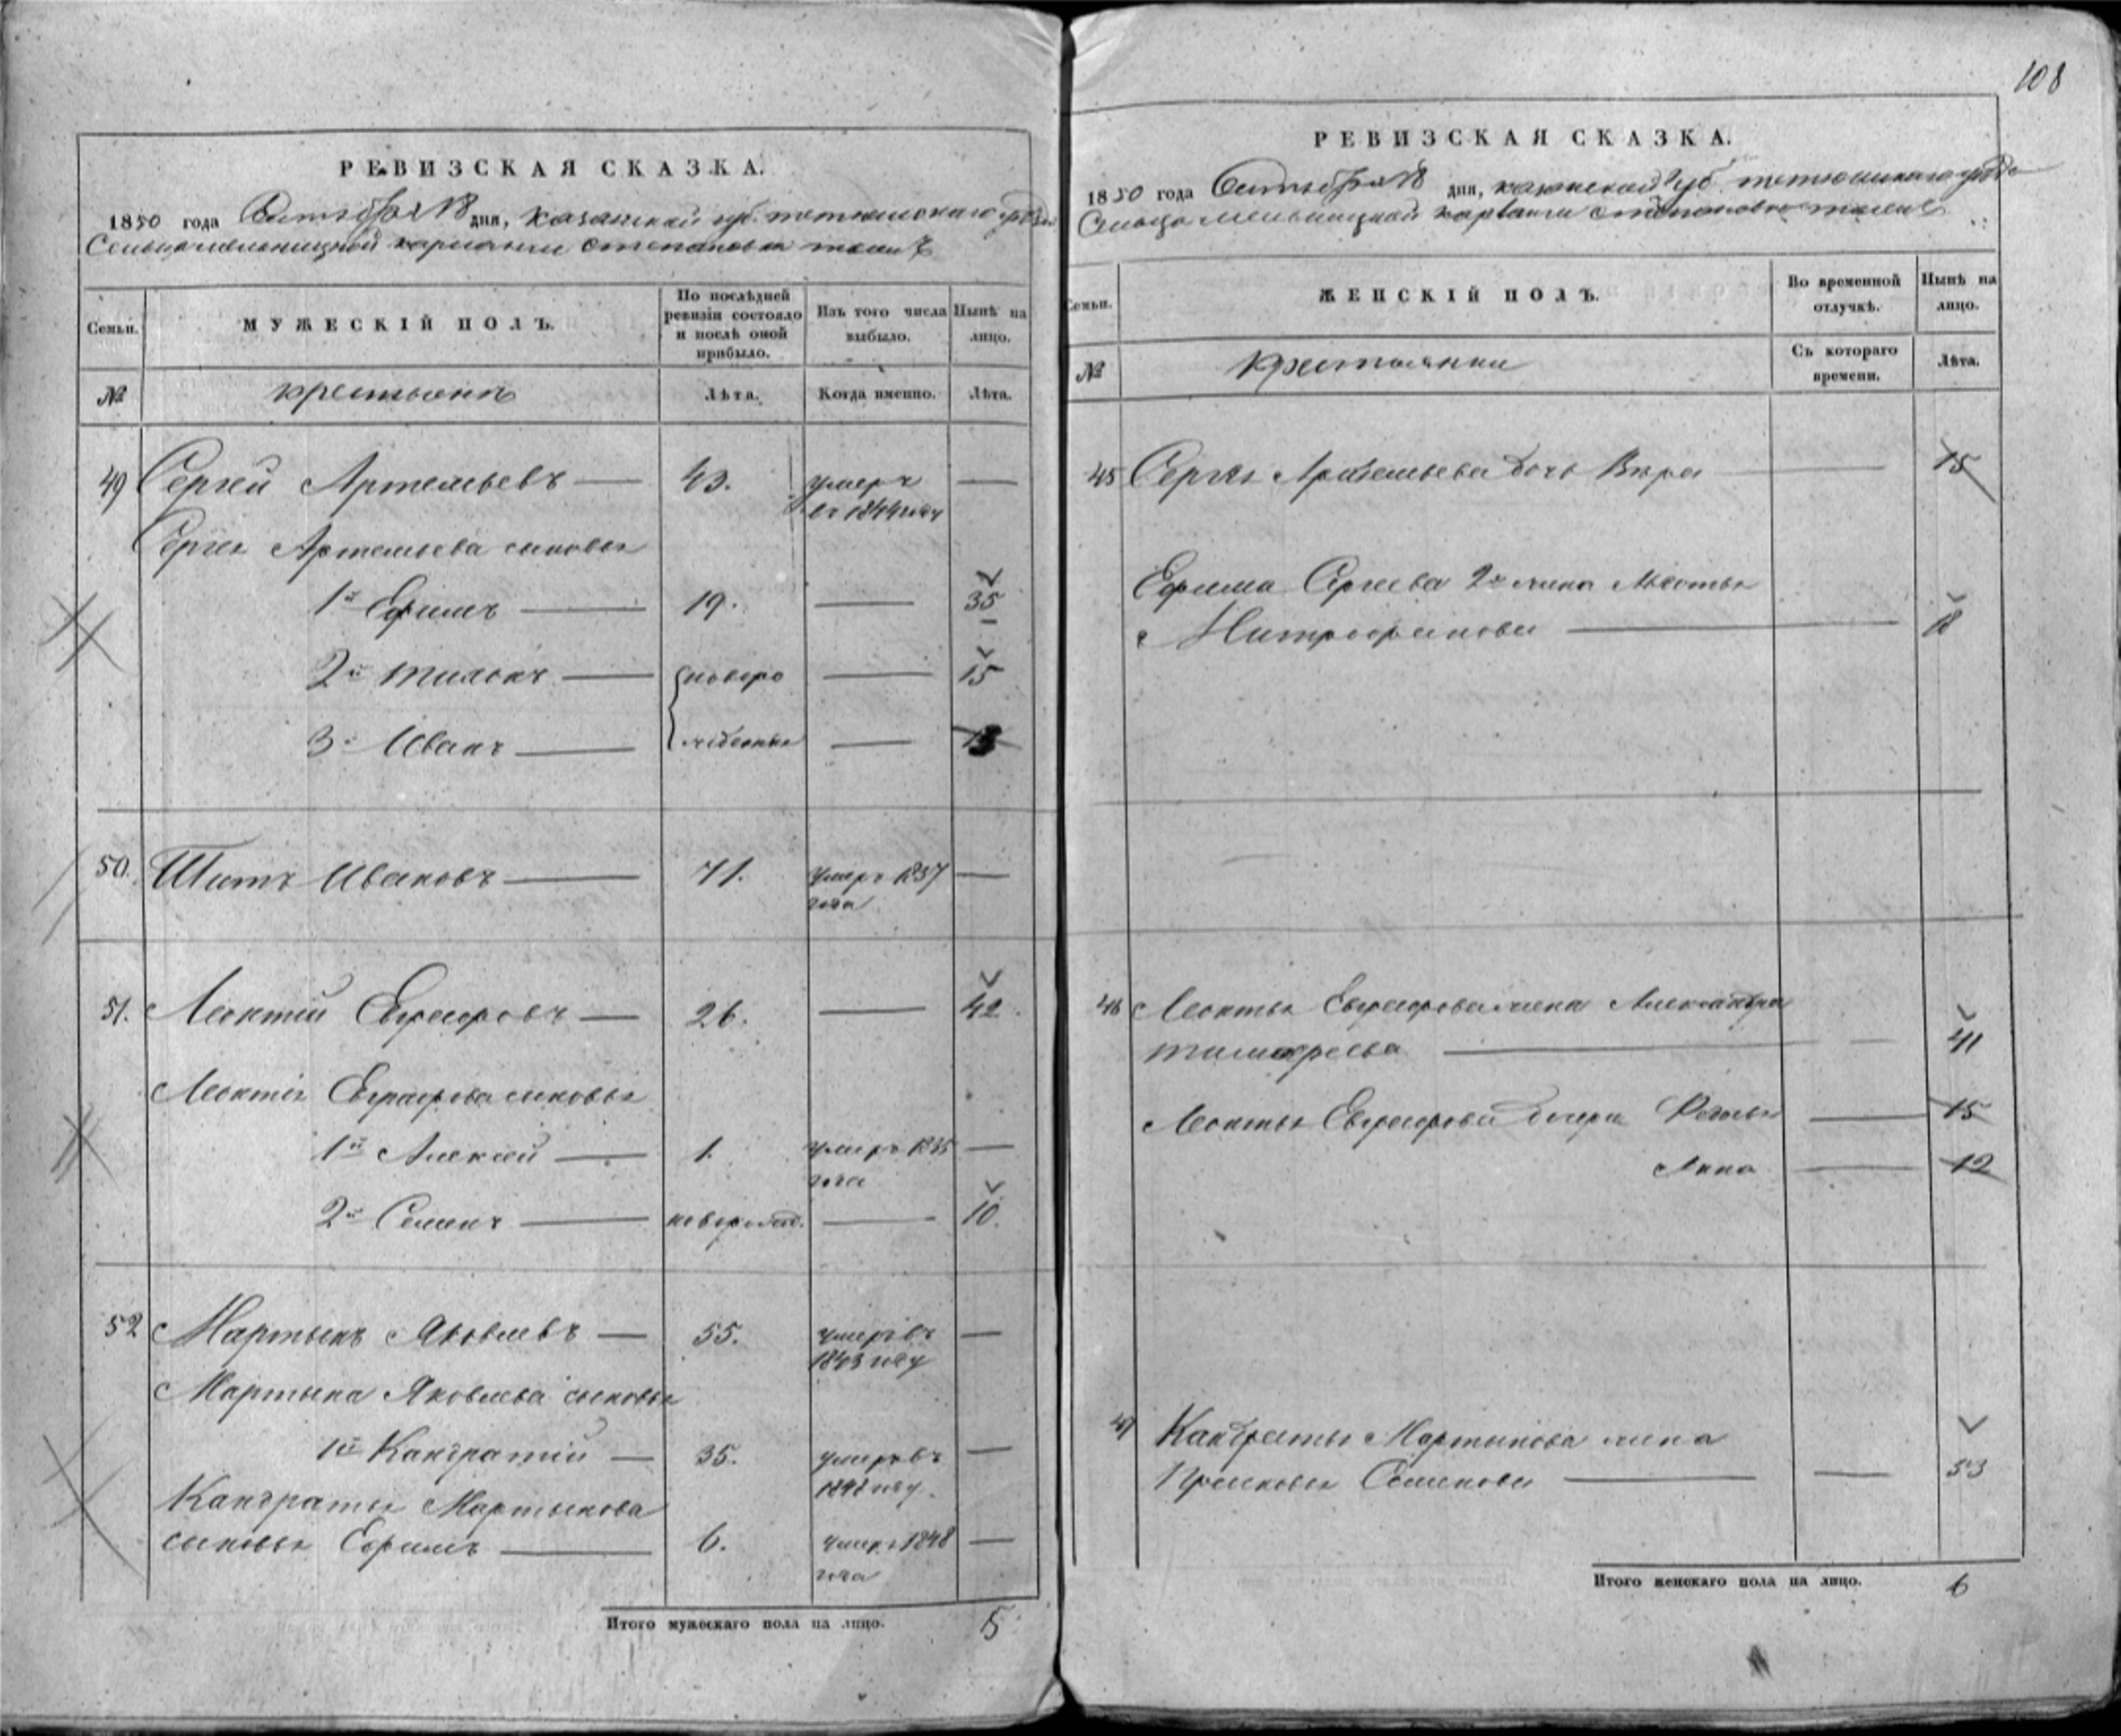 108
РЕВИЗСКАЯ СКАЗКА.
1850 года Октября 18 дня, казанской губ. тетюшскаго уезда
Сельца мельницкой степановка тожъ
Семьи.
МУЖЕСКІЙ ПОЛЪ.
По послѣдней ревизіи состояло и послѣ оной прибыло.
Изъ того числа выбыло.
Нынѣ на лицо.
№
крестьянъ
Лѣта.
Когда именно.
Лѣта.
49 Сергей Артемьевъ — 43. умеръ въ 1844 году —
Сергея Артемьева сыновья
1й Ефимъ — 19. — 35
2й — {новоро — 15
3й Иванъ — жденные — 13
50. Титъ Ивановъ — 71. умеръ 1837 года —
51. Леонтій Евграфовъ — 26. — 42.
Леонтія Евграфова сыновья
1й Алексей — 1. умеръ 1835 года —
2й Семенъ — новорожд. — 10.
52 Мартынъ Яковлевъ — 55. умеръ въ 1843 году —
Мартына Яковлева сыновья
1й Кандратій — 35. умеръ въ году —
Кандратья Мартынова
сыновья Ефимъ — 6. умеръ 1848 года —
Итого мужескаго пола на лицо. 5
РЕВИЗСКАЯ СКАЗКА.
1850 года Октября 18 дня, казанской губ. тетюшскаго уезда
Сельца мельницкой степановка тожъ
Семьи.
ЖЕНСКІЙ ПОЛЪ.
Во временной отлучкѣ.
Нынѣ на лицо.
№
Крестьянки
Съ котораго времени.
Лѣта.
45 Сергея Артемьева дочь Вера — 15
Ефима Сергеева 2я жена
Митрофанова — 18
46 Леонтья Евграфова жена Александра
тимофеева — 41
Леонтья Евграфова дочери Федосья — 15
Анна — 12
47 Кандратья Мартынова жена
Прасковья Семенова — 53
Итого женскаго пола на лицо. 6